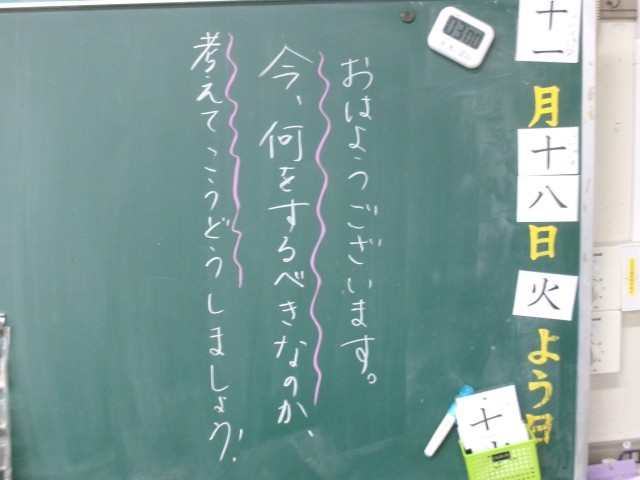 十一月十八日火よう日
おはようございます。
今、何をするべきなのか、
考えてこうどうしましょう!
03:00
十